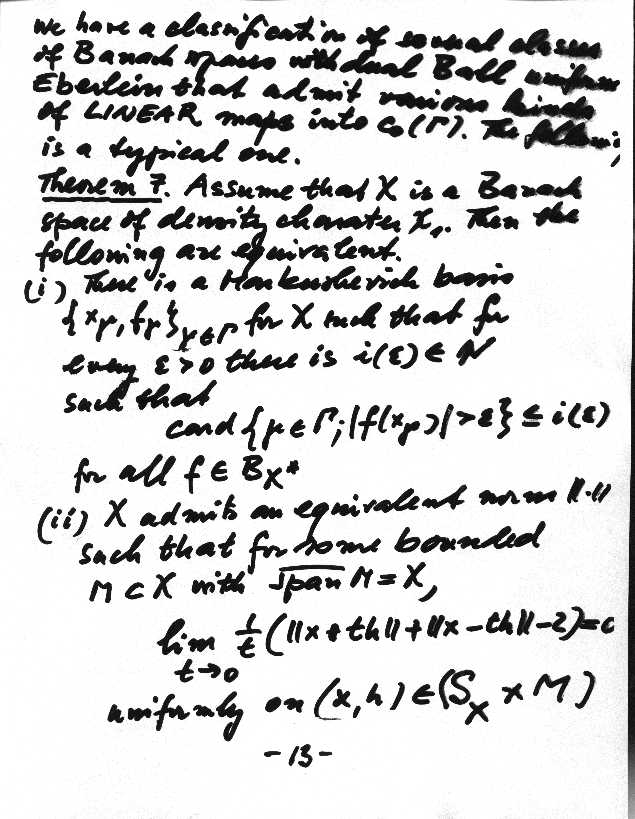 we have a classification of several classes
of Banach spaces with dual Ball uniform
Eberlein that admit various kinds
of LINEAR maps into c₀(Γ). The follow
is a typical one.
Theorem 7. Assume that X is a Banach
space of density character ℵ₁. Then the
following are equivalent.
(i) There is a Markushevich basis
{xμ, fμ}μ∈Γ for X such that for
every ε > 0 there is i(ε) ∈ N
such that
card {μ ∈ Γ; |f(xμ)| > ε} ≤ i(ε)
for all f ∈ B_X*
(ii) X admits an equivalent norm ||·||
such that for some bounded
M ⊂ X with span M = X,
lim 1/t (||x + th|| + ||x - th|| - 2) = 0
t→0
uniformly on (x, h) ∈ (S_X × M)
- 13 -